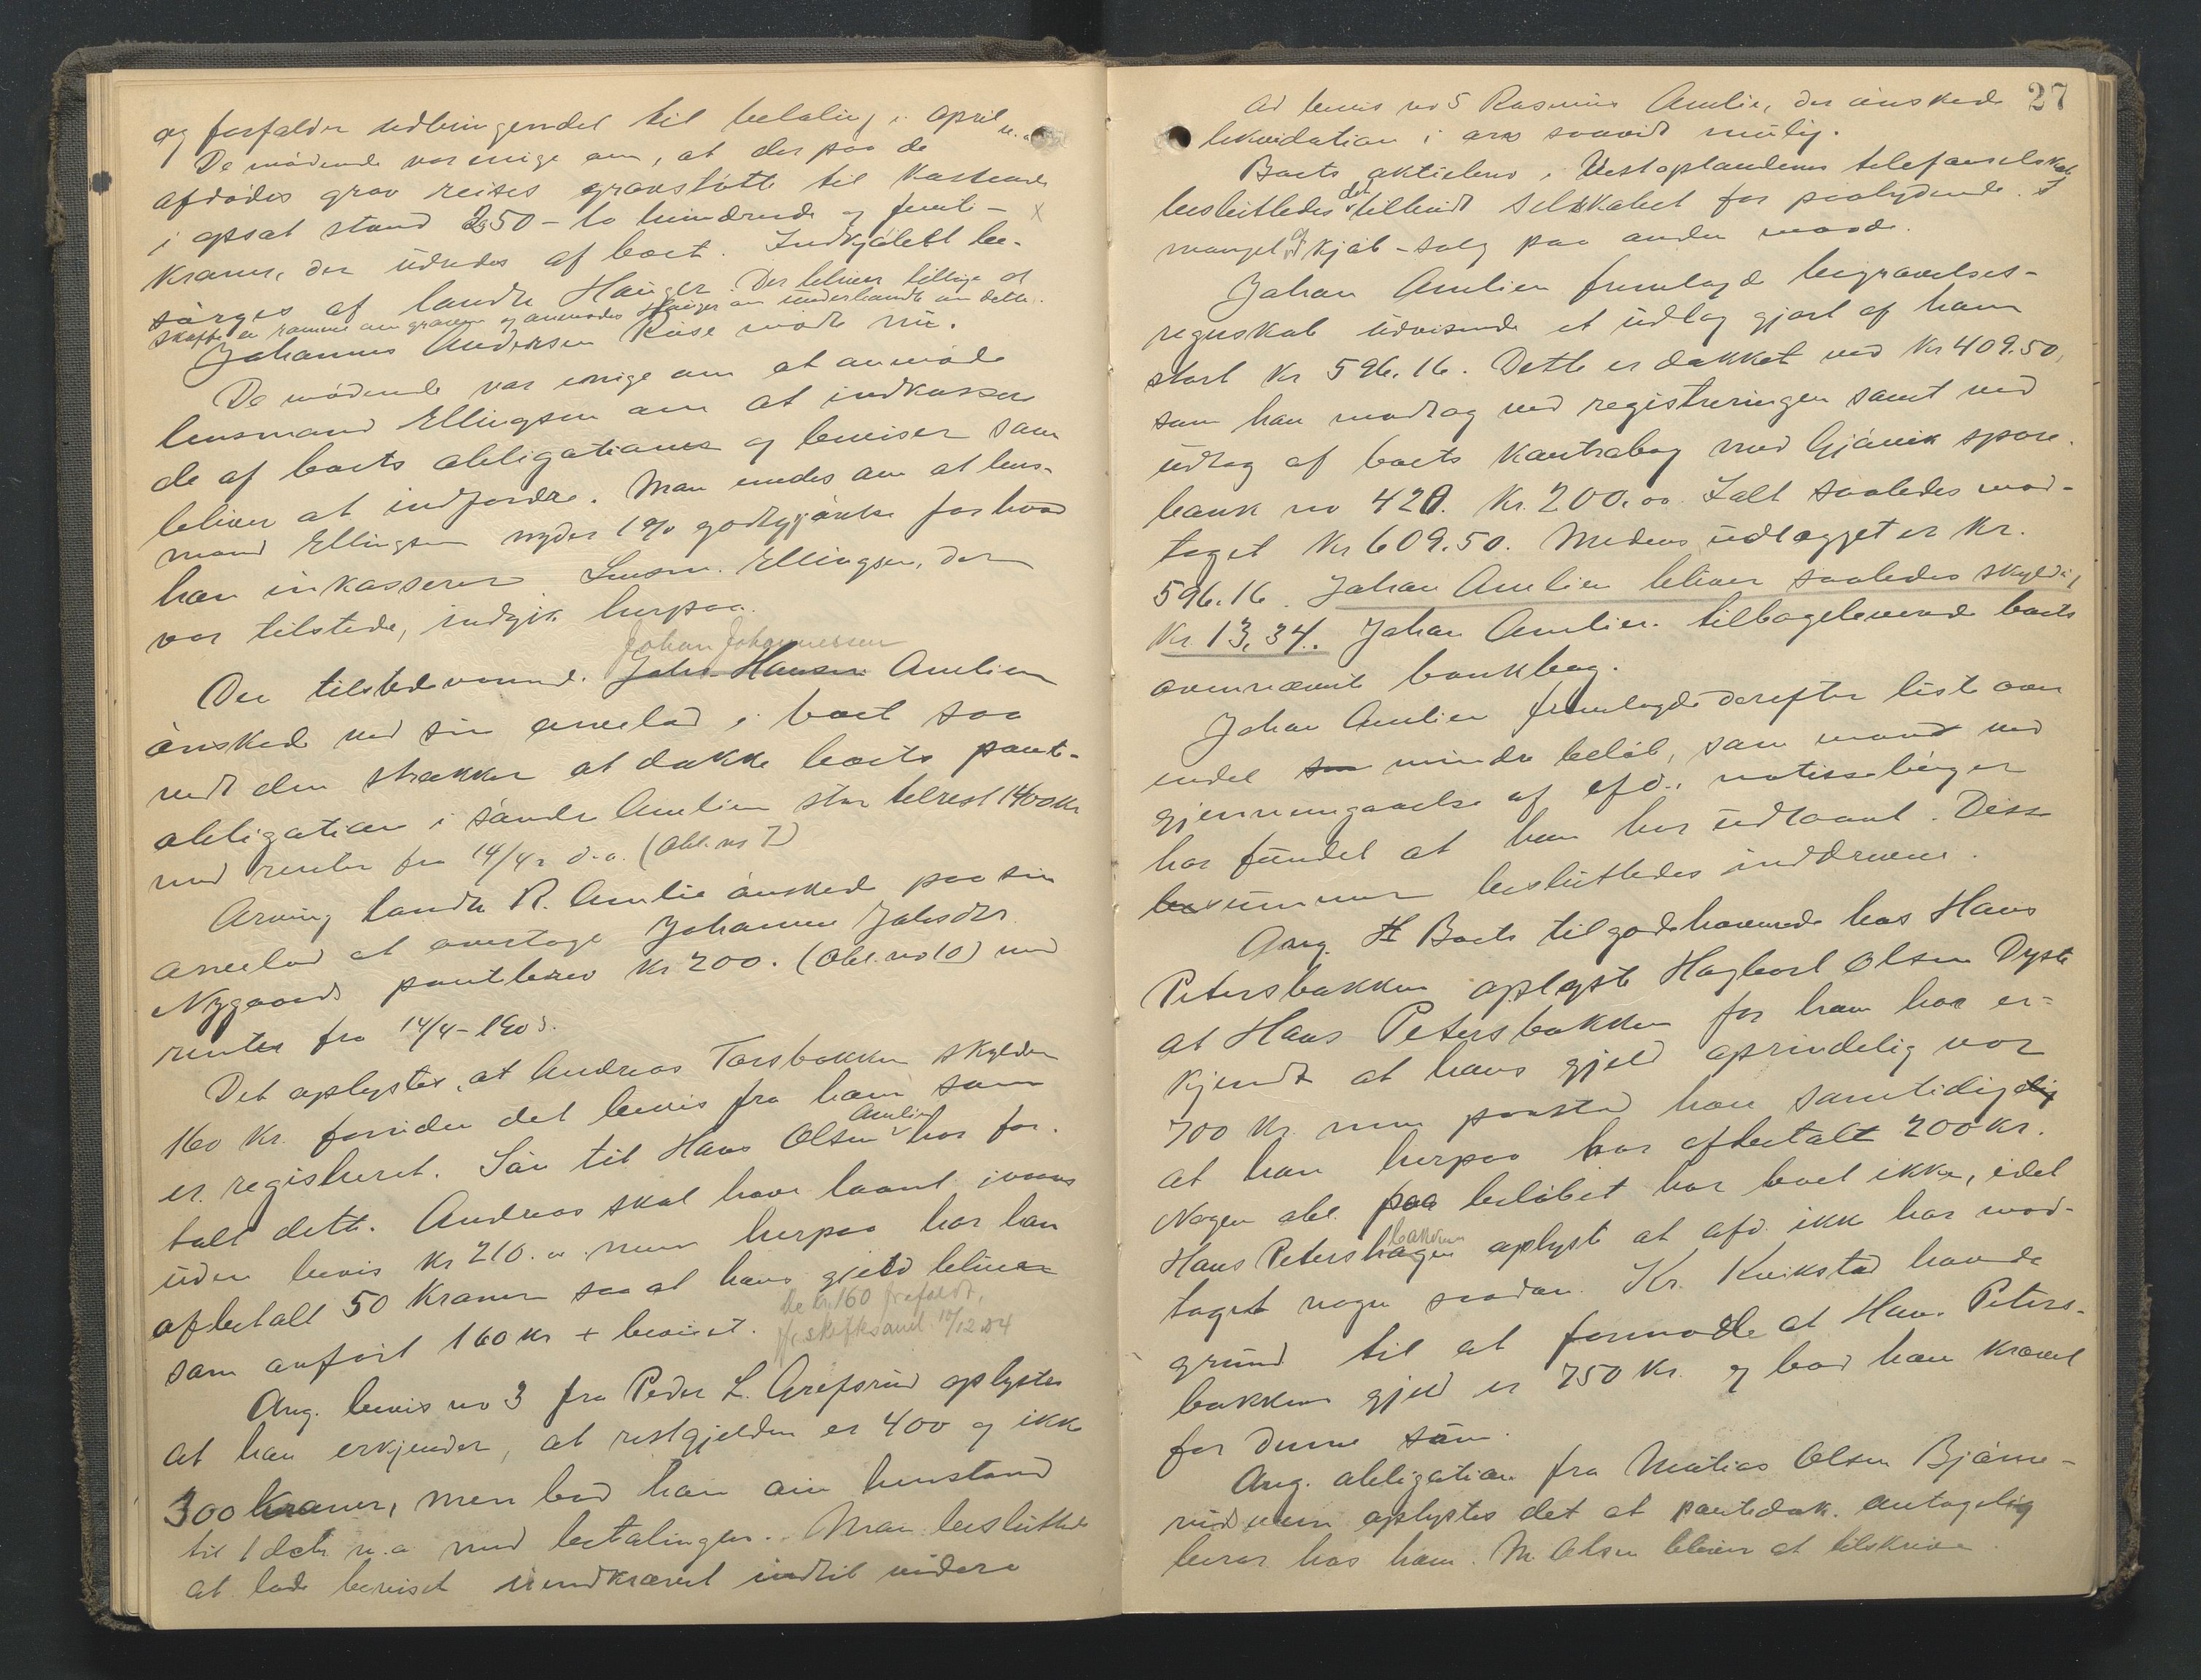 og forfalder udbringendet til betaling i april n.a.
De mödende var enige om, at der paa de
afdödes grav reises gravstötte til kostende
i opsat stand 250 - to hundrede og femti - x
kroner, der udredes af boet. Indkjöbet be-
sörges af landh. Hauger. Der bliver tillige at
skaffe en ramme om graven og anmodes Hauger om underhandle om dette.
Johannes Andersen Röise mödte nu.
De mödende var enige om at anmode
lensmand Ellingsen om at indkassere
de af boets obligationer og beviser som
bliver at indfordre. Man enedes om at lens-
mand Ellingsen nyder 1 % godtgjörelse for hvad
han inkasserer. Lensm. Ellingsen, der
var tilstede, indgik herpaa.
Johan Johannessen
Den tilstedeværende Johs. Hansen Amlien
önskede ved sin arvelod i boet saa
vidt den strækker at dække boets pante-
obligation i söndre Amlien stor tilrest 1400 kr
med renter fra 14/4 d.a. (Obl. no 7)
Arving landh. R. Amlie önskede paa sin
arvelod at overtage Johannes Johsdtr.
Nygaards pantbrev kr 200. (Obl. no 10) med
renter fra 14/4 - 1903.
Det oplystes, at Andreas Torsbakken skylder
160 kr. foruden det bevis fra ham som
er registreret. Sön til Hans Olsen Amlien har for-
talt dette. Andreas skal have laant
uden bevis kr 210.00 men herpaa har han
afbetalt 50 kroner saa at hans gjeld bliver
som anfört 160 kr + beviset.
De kr 160 frafaldt,
jfr skiftesaml. 10/12 04
Ang. bevis no 3 fra Peder L. Grefsrud oplystes
at han erkjender, at restgjelden er 400 og ikke
300 kroner, men bad han om henstand
til 1 dets n.a. med betalingen. Man besluttede
at lade beviset uindkrævet indtil videre
27
Ad bevis no 5 Rasmus Amlie, der önskede
likvidation i arv saavidt mulig.
Boets aktiebrev i Vestoplandenes telefonselskab
besluttedes det tilbudt selskabet for paalydende. I
mangel af kjöb - salg paa anden maade.
Johan Amlien fremlagde begravelses-
regnskab udvisende et udlæg gjort af ham
stort kr 596.16. Dette er dækket ved kr 409.50,
som han modtog ved registreringen samt ved
udtog af boets kontrabog med Gjövik spare-
bank no 420. kr. 200.00. Ialt saaledes mod-
taget kr 609.50. Medens udlægget er kr.
596.16. Johan Amlien bliver saaledes skyldig
kr. 13.34. Johan Amlien tilbageleverede boets
ovennævnte bankbog.
Johan Amlien fremlagde derefter liste over
endel som mindre belöb, som mand ved
gjennemgaaelse af afd.s notisseböger
har fundet at han har udlaant. Disse
summer besluttedes inddrevne.
Ang. Boets tilgodehavende hos Hans
Petersbakken oplyste Hagbart Olsen Dyste
at Hans Petersbakken for ham har er-
kjendt at hans gjeld oprindelig var
700 kr. men paastod han samtidig
at han herpaa har afbetalt 200 kr.
Nogen obl. paa belöbet har boet ikke, idet
bakken
Hans Petershagen oplyste at afd. ikke har mod-
taget nogen saadan. Kr. Kvikstad havde
grund til at formode at Hans Peters-
bakkens gjeld er 750 kr. og bad han krævet
for denne sum.
Ang. obligation fra Matias Olsen Björne-
rudmoen oplystes det at pantedok. antagelig
beror hos ham. M. Olsen bliver at tilskrive.